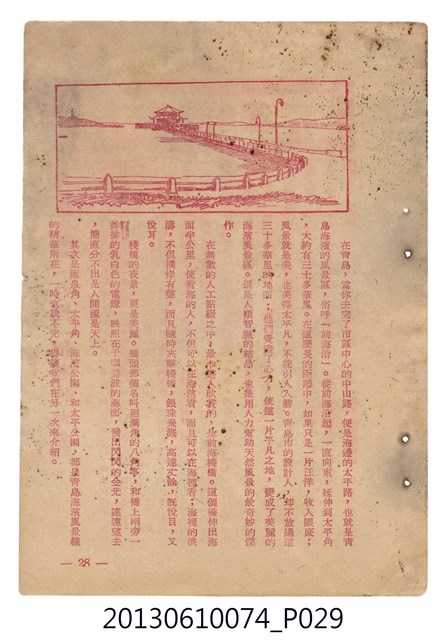 在青島，當你去完了市區中心的中山路，便是海邊的太平路，也就是青
島海濱的風景區，俗呼「前海沿」。從前海沿起，一直向東，延伸到太平角
，大約有三十多華里。在這漫長的距離中，如果只是一片汪洋，收入眼底，
風景就是美，也美得太平凡，不能引人入勝。青島市的設計人，却不放過這
三十多華里的地面，他們費盡了心力，使這一片平凡之地，變成了美麗的
海濱風景區。這是人類智慧的結晶，也是用人力幫助天然風景的最奇妙的傑
作。
在無數的人工點綴之中，最令人欣賞的，是前海棧橋。這個橋伸出海
面半公里，使看海的人，不但可以在海濱看，而且可以在海裡看；海裡的浪
濤，不但撲岸有聲，而且隨時夾擊棧橋，銀珠飛濺，高達丈餘，既悅目，又
悅耳。
棧橋的夜景，更是美麗。橋頭那個名叫迴瀾角的八角亭，和橋上兩旁一
排排的乳白色的電燈，映照在千頃碧波的海面，發出閃閃的金光，遠遠望去
，簡直分不出是人間還是天上。
其次是匯泉角、太平角、海濱公園、和太平公園，都是青島海濱風景線
的精華所在，一時也說不完，讓我們在另一次來介紹。
— 28 —
20130610074_P029